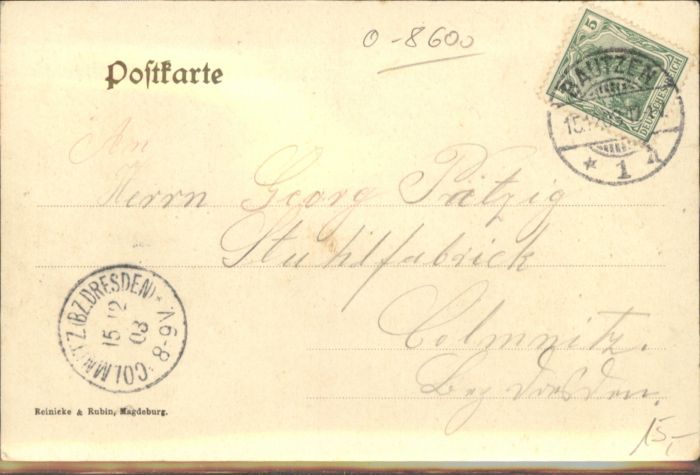 0-8600
Postkarte
5
DEUTSCHES REICH
BAUTZEN
15.12.03
* 1
An
Herrn Georg Pätzig
Stuhlfabrick
Colmnitz.
Bez Dresden.
COLMNITZ (BZ. DRESDEN)
15 12 03
Reinicke & Rubin, Magdeburg.
15,-